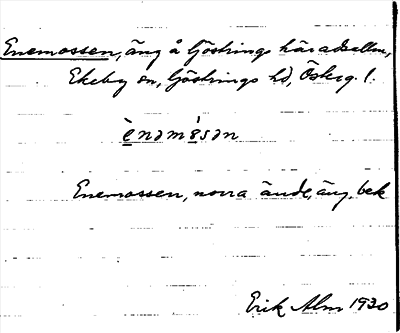 Enemossen, äng å Göstrings häradsallm,
Ekeby sn, Göstrings hd, Österg. l.
ènəmɵ́sən
Enemossen, norra ände, äng, bek
Erik Alm 1930